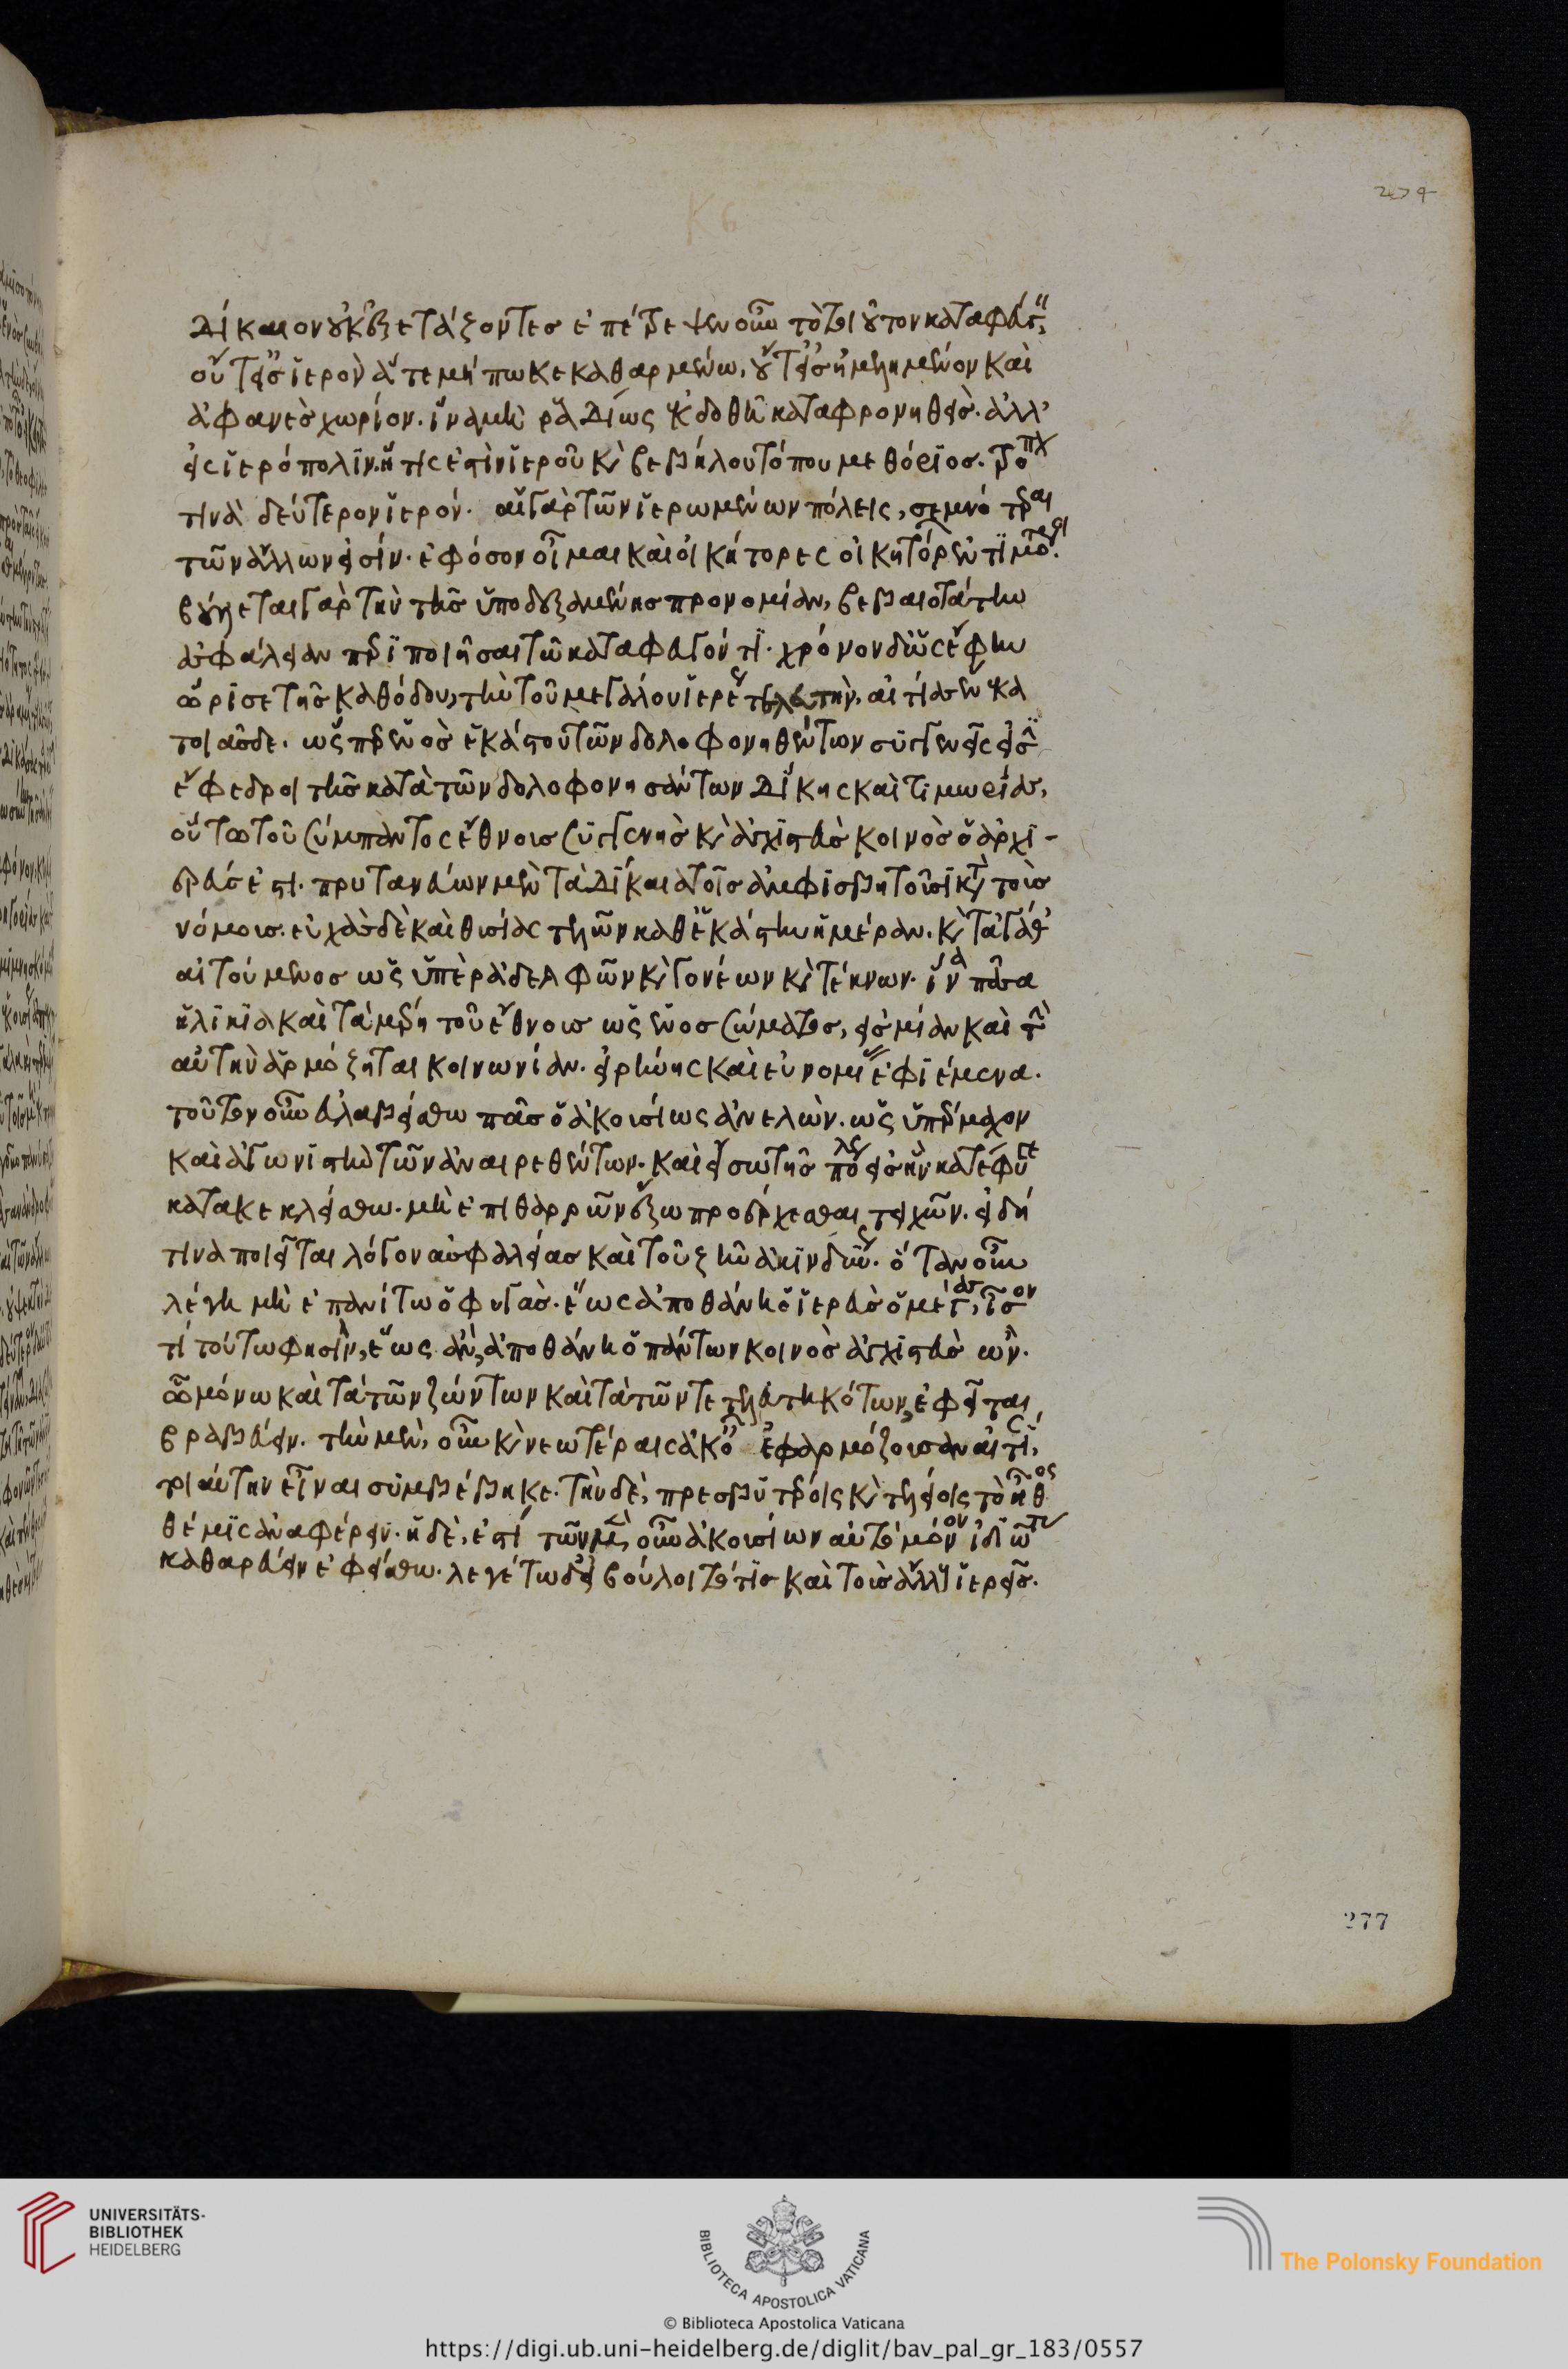 δίκαιον οὐκ ἐξετάζοντες ἐπέτρεψεν οὖν τὸ τοιοῦτον καταφεύγ
οὔτ εἰς ἱερὸν ἅτε μήπω κεκαθαρμένω, οὔτ εἰς ἠμελημένον καὶ
ἀφανὲς χωρίον. ἵνα μὴ ραδίως ἐκδοθῆ καταφρονηθεὶς. ἀλλ'
εἰς ἱερό πολιν. ἥτις ἐστὶν ἱεροῦ κὶ βεβήλου τόπου μεθόριος. τρό
τινὰ δεύτερον ἱερόν. αἱ γὰρ τῶν ἱερωμένων πόλεις, σεμνότεραι
τῶν ἄλλων εἰσίν. ἐφόσον οἶμαι καὶ οἱ κήτορες οἰκητόρων
βούλεται γὰρ τὴν τῆς ὑποδεξαμένης προνομίαν, βεβαιοτάτην
ἀσφάλειαν περιποιῆσαι τῶ καταφυγόντι. χρόνον δ ὡς ἔφην
ὥρισε τῆς καθόδου, τὴν τοῦ μεγάλου ἱερέ τελευτὴν. αἰτίας ἕνεκα
τοιᾶσδε. ὡς περ ἑνὸς ἑκάστου τῶν δολοφονηθέντων συγγενεῖς εἰσὶ
ἔφεδροι τῆς κατὰ τῶν δολοφονησάντων δίκης καὶ τιμωρίας,
οὕτω τοῦ σύμπαντος ἔθνους συγγενὴς κὶ ἀγχιστεὺς κοινὸς ὁ ἀρχι-
ερεύς ἐστι. πρυτανεύων μὲν τὰ δίκαια τοῖς ἀμφισβητοῦσι κτ τοὺς
νόμους. εὐχὰς δὲ καὶ θυσίας τελῶν καθ ἑκάστην ἡμέραν. κὶ τἀγάθ
αἰτούμενος ὡς ὑπὲρ ἀδελφῶν κὶ γονέων κὶ τέκνων. ἵνα πᾶσα
ἡλικία καὶ τὰ μέρη τοῦ ἔθνους ὡς ἑνὸς σώματος, εἰς μίαν καὶ τ
αὐτὴν ἁρμόζηται κοινωνίαν. εἰρήνης καὶ εὐνομί ἐφιέμενα.
τοῦτον οὖν εὐλαβείσθω πᾶς ὁ ἀκουσίως ἀνελὼν. ὡς ὑπέρμαχον
καὶ ἀγωνιστὴν τῶν ἀναιρεθέντων. καὶ εἴσω τῆς πόλ εἰς ἣν κατέφυγε
κατακεκλείσθω. μὴ ἐπιθαρρῶν ἔξω προέρχεσθαι τειχῶν. εἰ δή
τινα ποιεῖται λόγον ἀσφαλείας καὶ τοῦ ζῆν ἀκινδύν. ὅταν οὖν
λέγη μὴ ἐπανίτω ὁ φυγὰς. ἕως ἀποθάνη ὁ ἱερεὺς ὁ μέγας, ἴσον
τί τούτω φησὶν, ἕως ἂν, ἀποθάνη ὁ πάντων κοινὸς ἀγχιστεὺς ὢν.
ὧ μόνω καὶ τὰ τῶν ζώντων καὶ τὰ τῶν τετελευτηκότων, ἐφεῖται
βραβεύειν. τὴν μὲν, οὖν κὶ νεωτέραις ἀκο ἐφαρμόζουσαν αἰτί,
τοιαύτην εἶναι συμβέβηκε. τὴν δὲ, πρεσβυτέροις κὶ τελείοις τὸ ἦθος
θέμις ἀναφέρειν. ἡ δὲ, ἐστί τῶν μὲν, οὖν ἀκουσίων αὐτὸ μόνον ἰδιώτ
καθαρεύειν ἐφείσθω. λεγέτω δ εἰ βούλοιτό τις καὶ τοὺς ἄλλους ἱερεῖς.
277
UNIVERSITÄTS-
BIBLIOTHEK
HEIDELBERG
BIBLIOTECA APOSTOLICA VATICANA
The Polonsky Foundation
© Biblioteca Apostolica Vaticana
https://digi.ub.uni-heidelberg.de/diglit/bav_pal_gr_183/0557